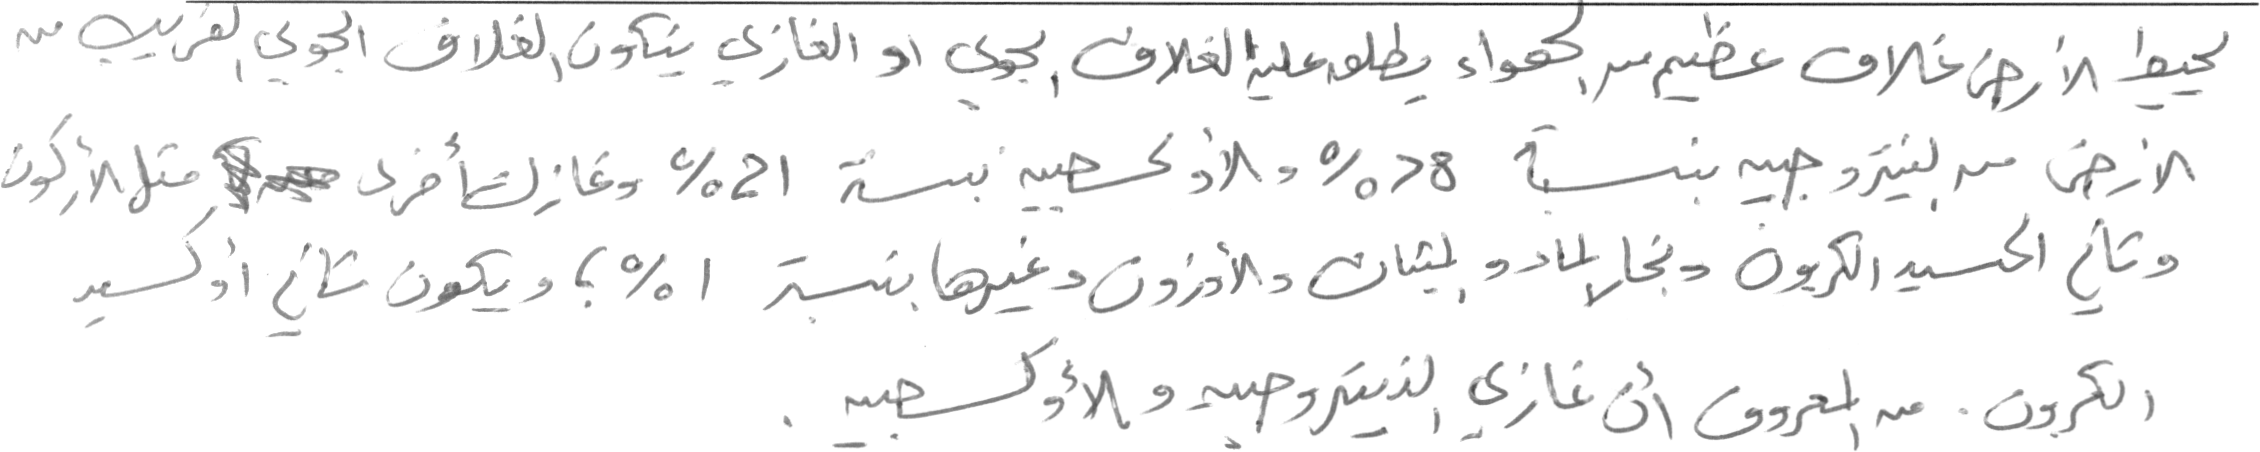 يحيط الأرض غلاف عظيم من الهواء يطلق عليه الغلاف الجوي او الغازي يتكون الغلاف الجوي القريب من
الأرض من النيتروجين بنسبة 78% والأوكسجين بنسبة 21% وغازات أخرى مثل الأركون
وثاني اكسيد الكربون وبخار الماء والميثان والأوزون وغيرها بنسبة 1%؛ ويكون ثاني أوكسيد
الكربون. من المعروف أن غازي النيتروجين والأوكسجين.